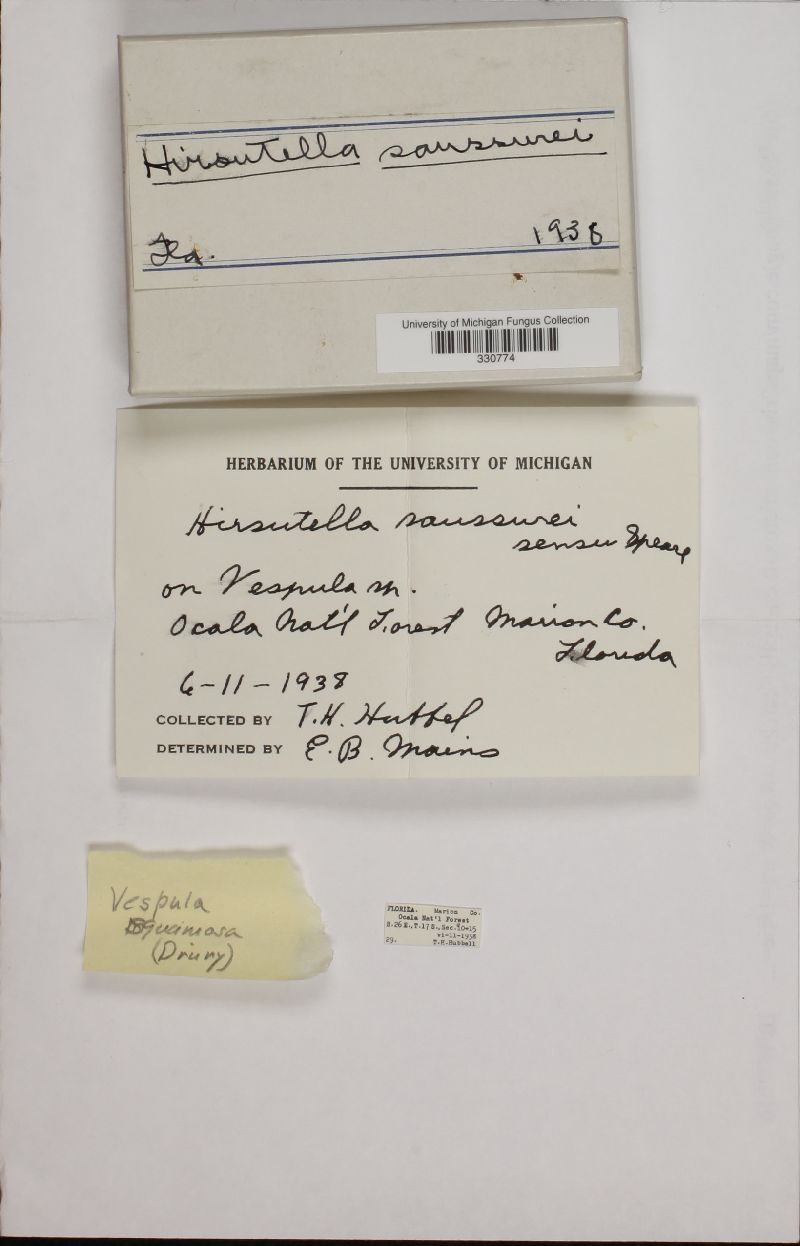 Hirsutella saussurei
Fla. 1938
University of Michigan Fungus Collection
330774
HERBARIUM OF THE UNIVERSITY OF MICHIGAN
Hirsutella saussurei
sensu Speare
on Vespula sp.
Ocala Nat'l Forest Marion Co.
Florida
6-11-1938
COLLECTED BY T.H. Hubbel
DETERMINED BY E.B. Mains
Vespula
squamosa
(Drury)
FLORIDA. Marion Co.
Ocala Nat'l Forest
R.26E.,T.17S.,Sec.10-15
vi-11-1938
29. T.H.Hubbell